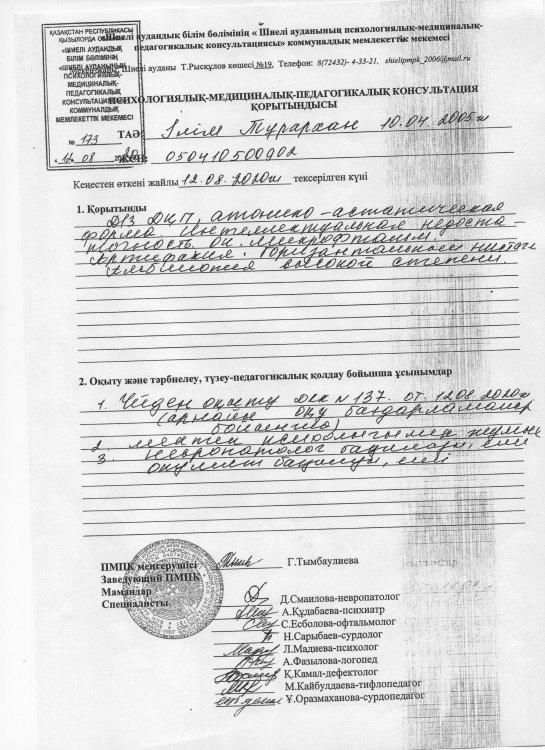 ҚАЗАҚСТАН РЕСПУБЛИКАСЫ
ҚЫЗЫЛОРДА ОБЛЫСЫ
«ШИЕЛІ АУДАНДЫҚ
БІЛІМ БӨЛІМІНІҢ
«ШИЕЛІ АУДАНЫНЫҢ
ПСИХОЛОГИЯЛЫҚ-
МЕДИЦИНАЛЫҚ-
ПЕДАГОГИКАЛЫҚ
КОММУНАЛДЫҚ
МЕМЛЕКЕТТІК МЕКЕМЕСІ
№ 173
«12» 08 2020
«Шиелі аудандық білім бөлімінің « Шиелі ауданының психологиялық-медициналық-
педагогикалық консультациясы» коммуналдық мемлекеттік мекемесі
Шиелі ауданы Т.Рысқұлов көшесі №19, Телефон: 8(72432)- 4-33-21, shielipmpk_2006@mail.ru
ПСИХОЛОГИЯЛЫҚ-МЕДИЦИНАЛЫҚ-ПЕДАГОГИКАЛЫҚ КОНСУЛЬТАЦИЯ
ҚОРЫТЫНДЫСЫ
ТАӘ: Ілім Турархан 10.04.2005ж
ЖСН: 050410500902
Кеңестен өткені жайлы 12.08.2020ж тексерілген күні
1. Қорытынды
ДЗ ДЦП, атонико-астатическая
форма. Интеллектуальная недоста-
точность. микрофтальм
Артифакия. Горизантальный нистагм
Амблиопия высокой степени.
2. Оқыту және тәрбиелеу, түзеу-педагогикалық қолдау бойынша ұсынымдар
1. Үйден оқыту N 137. от. 12.08.2020ж
(арнайы оқу бағдарламалар
бойынша)
2. мектеп психологымен жұмыс
3. Невропатолог бақылауы, емі
окулист бақылауы, емі
ПМПК меңгерушісі
Г.Тымбаулиева
Заведующий ПМПК
Мамандар
Специалисты
Д.Смаилова-невропатолог
А.Құдабаева-психиатр
С.Есболова-офтальмолог
Н.Сарыбаев-сурдолог
Л.Мадиева-психолог
А.Фазылова-логопед
Қ.Камал-дефектолог
М.Кайбулдаева-тифлопедагог
Ұ.Оразмаханова-сурдопедагог